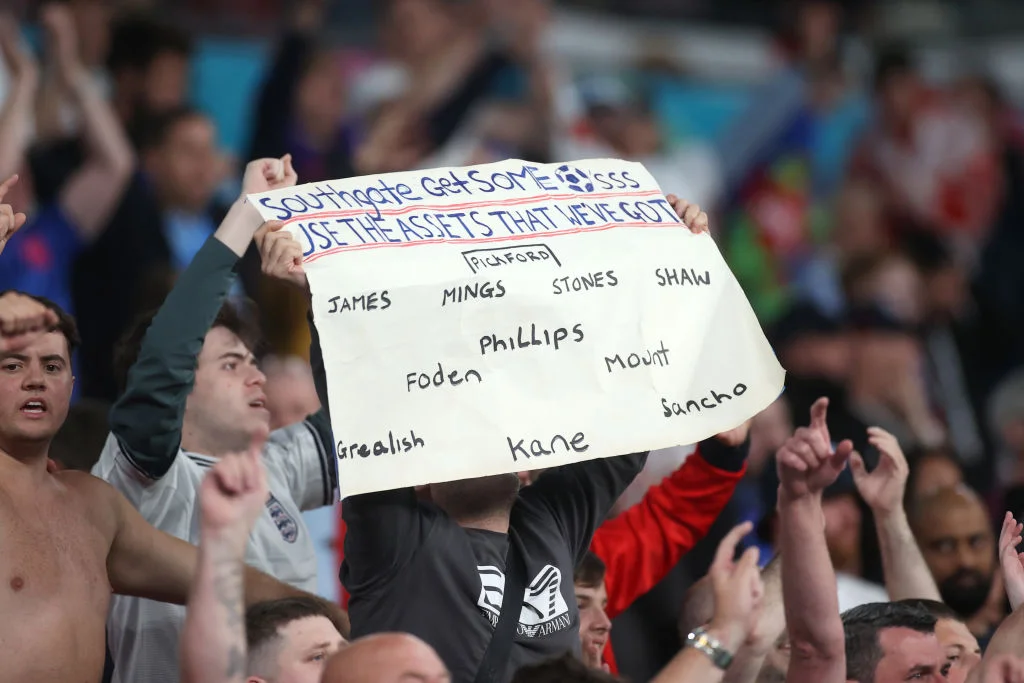 Southgate Get SOME 'SSS
USE THE ASSETS THAT WE'VE GOT
PICKFORD
JAMES MINGS STONES SHAW
PHILLIPS
Foden Mount
Sancho
Grealish Kane
ARMANI